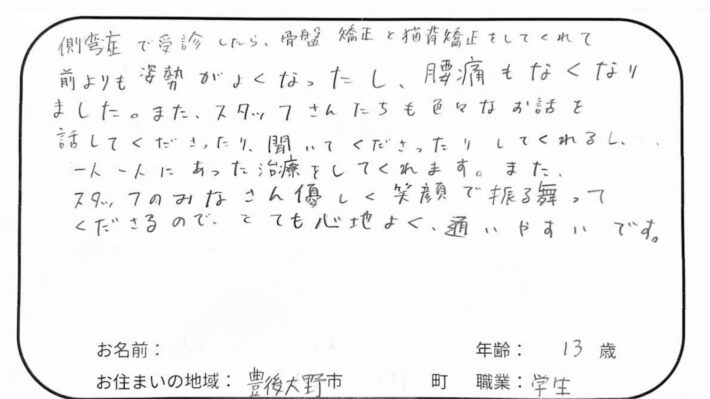 側弯症で受診したら、骨盤矯正と猫背矯正をしてくれて
前よりも姿勢がよくなったし、腰痛もなくなり
ました。また、スタッフさんたちも色々なお話を
話してくださったり、聞いてくださったりしてくれるし、
一人一人にあった治療をしてくれます。また、
スタッフのみなさん優しく笑顔で振る舞って
くださるので、とても心地よく、通いやすいです。
お名前： 年齢： 13 歳
お住まいの地域： 豊後大野市 町 職業： 学生